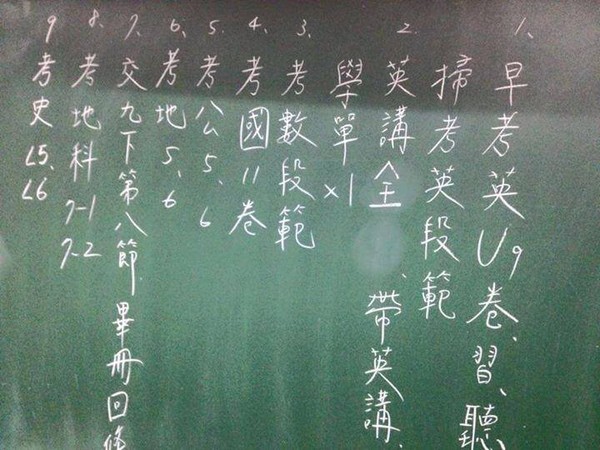 1. 早考英U9卷、習、聽
掃考英段範
2. 英講全、帶英講、
學單×1
3. 考數段範
4. 考國11卷
5. 考公5、6
6. 考地5、6
7. 交九下第八節 畢冊回
8. 考地科7-1 7-2
9 考史L5、L6